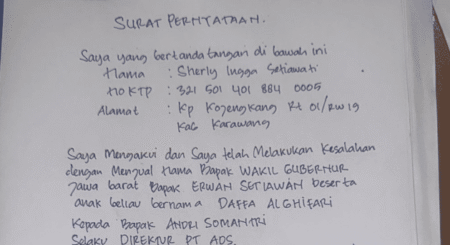 SURAT PERNYATAAN.
Saya yang bertanda tangan di bawah ini
Nama : Sherly Ingga Setiawati
NO KTP : 321 501 401 884 0005
Alamat : Kp Kojengkang Rt 01/RW 19
Kab Karawang
Saya Mengakui dan Saya telah Melakukan Kesalahan
dengan Menjual Nama Bapak WAKIL GUBERNUR
Jawa barat Bapak ERWAN SETIAWAN beserta
anak beliau bernama DAFFA ALGHIFARI
Kepada Bapak ANDRI SOMANTRI
Selaku DIREKTUR PT ADS.